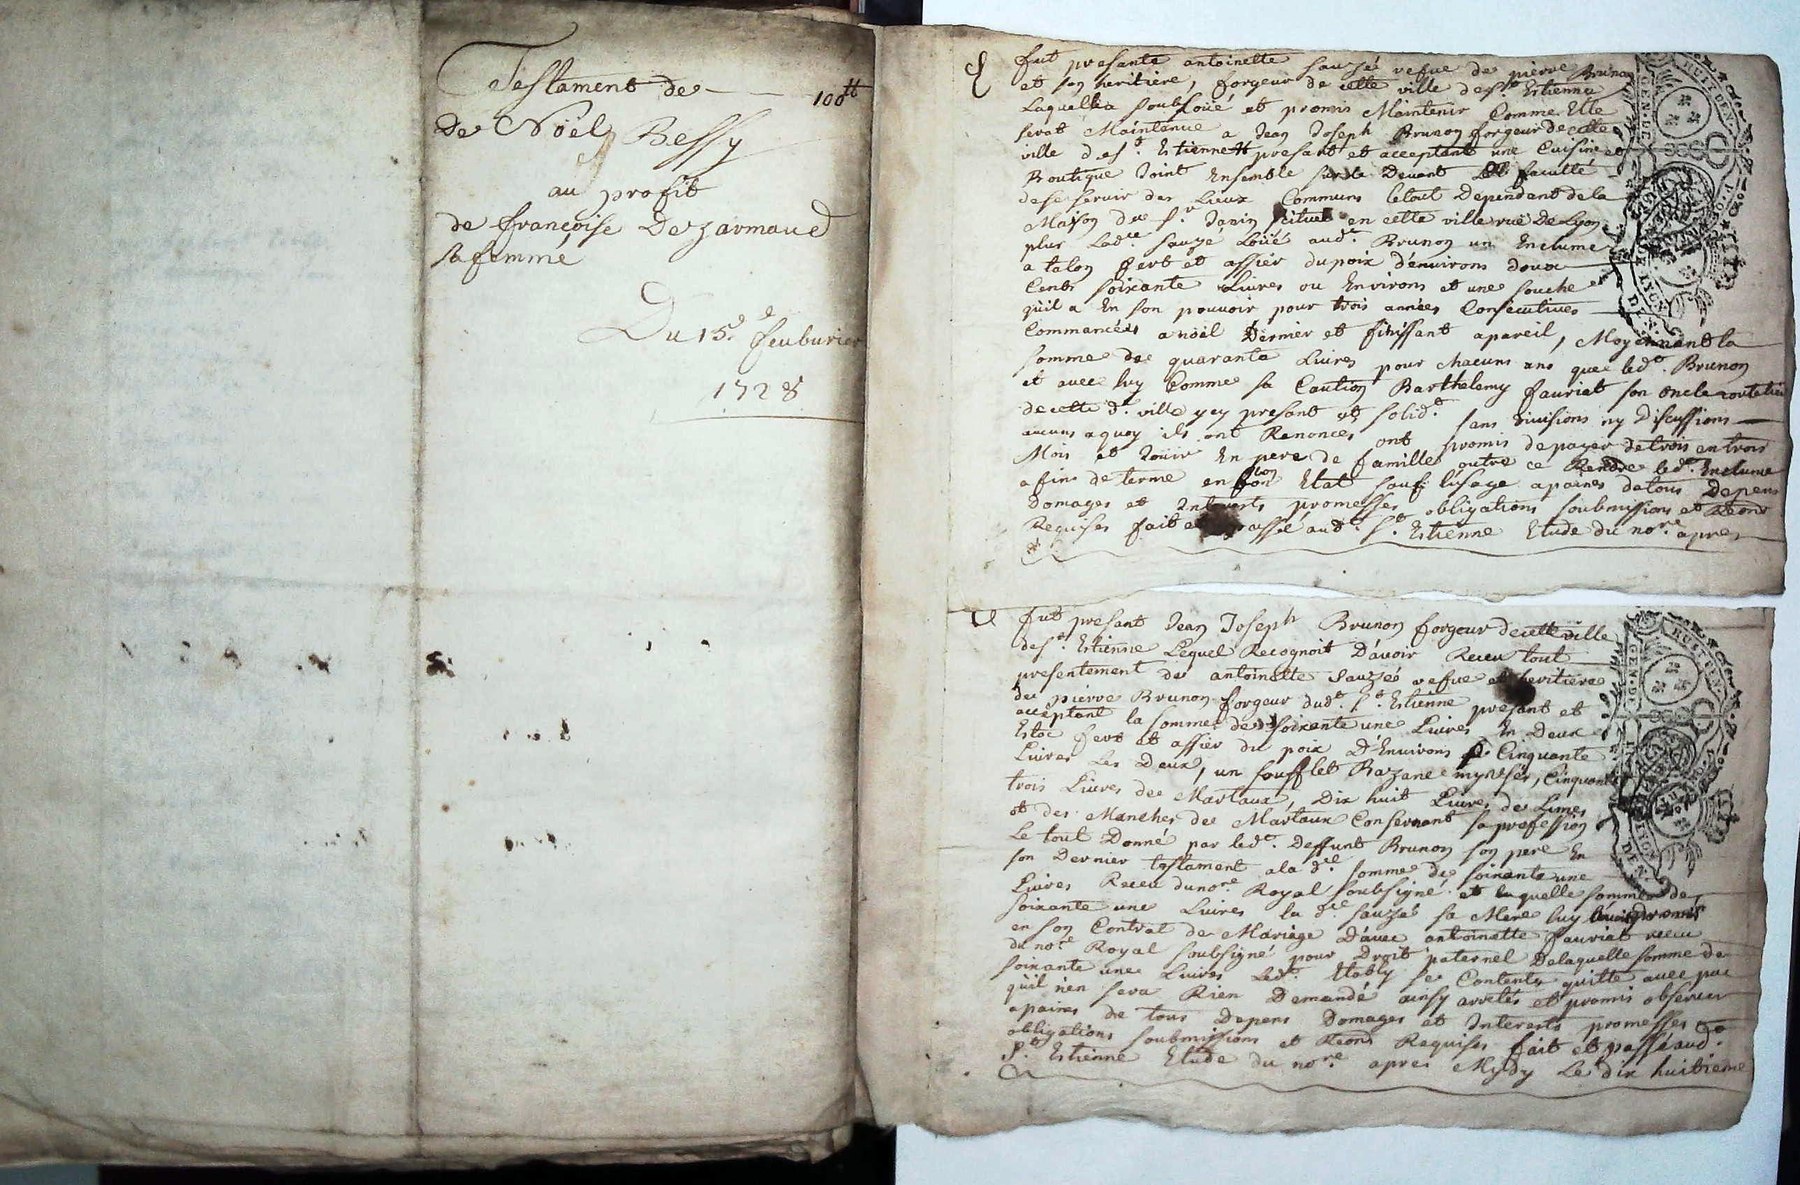 Testament de 100ᵗᵗ
De Noël Bessy
au profit
de françoise Dezarmaud
sa femme
Du 15.e feuburier
1728
fut presante antoinette sauzéé vefue de pierre Brunon
et son heritiere, forgeur de cette ville de st. Estienne
Laquelle a soubsloüé et promis Maintenir Comme Elle
serat Maintenue a Jean Joseph Brunon forgeur de cette
ville de st. Estienne present et acceptant une Cuisine et
Boutique Joint Ensemble sur le Devant faculté
de se servir des Lieux Communs Letout Dependant de la
Maison du sr. Janin scituee en cette ville rue De Lyon
plus Ladce. sauzé Loüé audt. Brunon un Enclume
a talon fert et assier du poix d'environs deux
Cents soixante Livres ou Environs et une souche
quil a En son pouvoir pour trois années Consecutives
Commancées a noël Dernier et finissant apareil, Moyennant la
somme de quarante Livres pour chacuns ans que ledt. Brunon
et avec luy Comme sa Caution Barthelemy fauriat son oncle
de cette dt. ville yey present et solidt. sans divisions ny discussions
aucuns a quoy ils ont Renoncés ont promis de payer de trois en trois
Mois et Joüir En pere de famille outre ce Rendre ledt. Enclume
a fin de terme en bon Etat sauf lusage a paines de tous Depens
Domages et Interests promesses obligations soubmissions et Renons
Requises fait et passé audt. st. Estienne Etude du nore. apres
fut present Jean Joseph Brunon forgeur de cette ville
de st. Estienne Lequel Recognoit D'avoir Receu tout
presentement de antoinette sauzéé vefue et heritiere
de pierre Brunon forgeur dudt. st. Estienne present et
acceptant la somme de soixante une Livres En Deux
Estoc fert et assier du poix D'Environs Cinquante
Livres Les Deux, un soufflet Bazane my usés, Cinquante
trois Livres de Martaux, Dix huit Livres de Limes
et des Manches de Martaux Consernant sa profession
Le tout Donné par ledt. Deffunt Brunon son pere En
son Dernier testament a la dce. somme de soixante une
Livres Receu du nore. Royal soubsigné et laquelle somme de
soixante une Livres la dce. sauzéé sa Mere luy promis
en son Contrat de Mariage D'avec antoinette fauriat receu
du nore Royal soubsigné pour Droit paternel De laquelle somme de
soixante une Livres ledt. se Contente quitte avec pac
quil n'en sera Rien Demandé ainsy arretés et promis observer
a paines de tous Depens Domages et Interests promesses
obligations soubmissions et Renons Requises fait et passé audt.
st. Estienne Etude du nore. apres Mydy Le dix huitieme